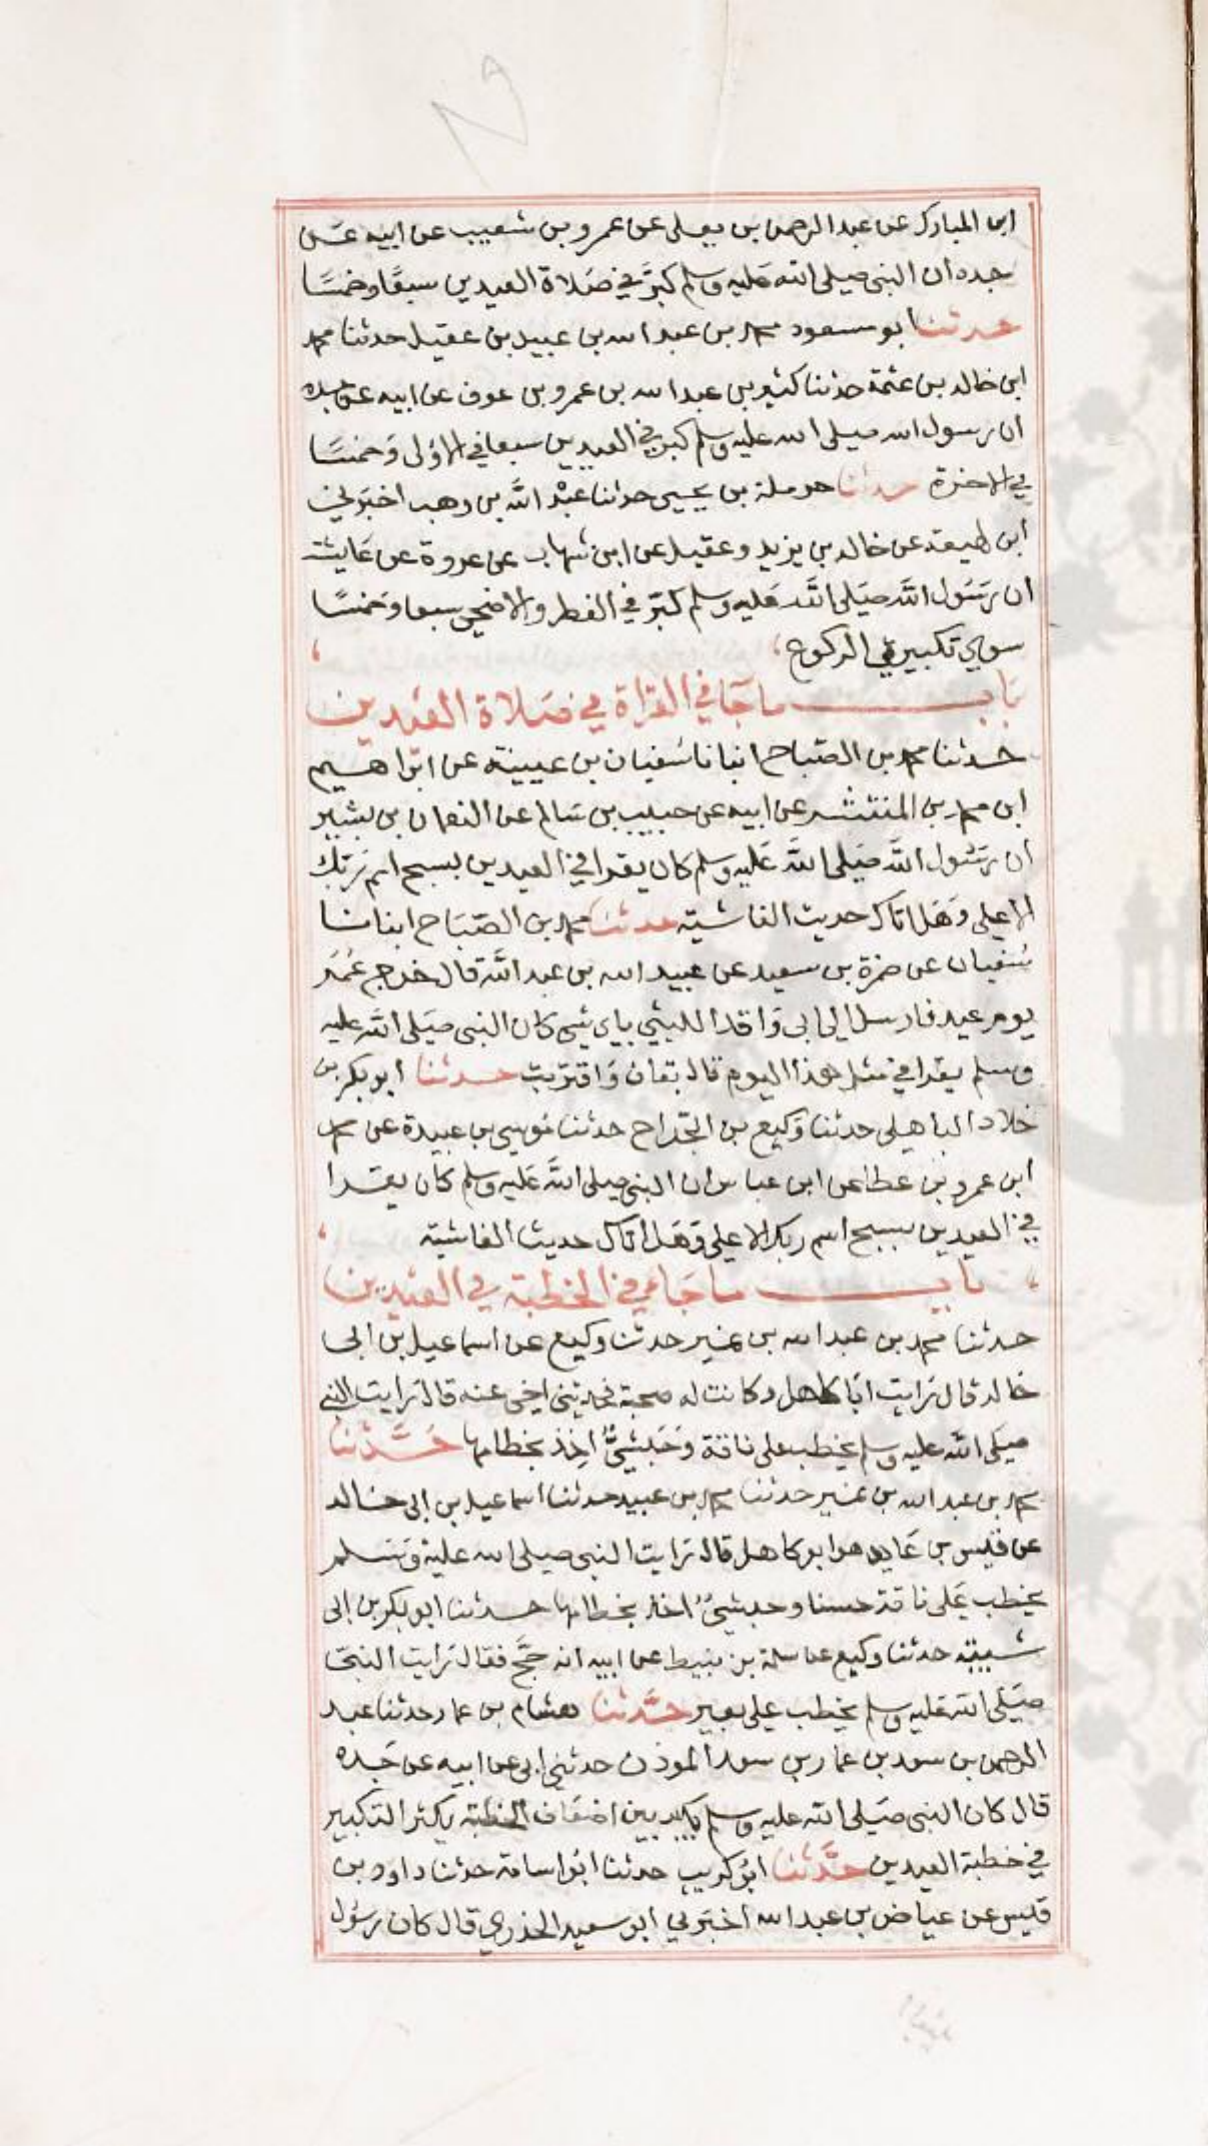 ابن المبارك عن عبد الرحمن بن يعلى عن عمرو بن شعيب عن ابيه عن
جده أن النبي صلى الله عليه وسلم كبّر في صلاة العيدين سبعًا وخمسًا
حدثنا ابو مسعود محمد بن عبد الله بن عبيد بن عقيل حدثنا محمد
ابن خالد بن عثمة حدثنا كثير بن عبد الله بن عمرو بن عوف عن ابيه عن جده
ان رسول الله صلى الله عليه وسلم كبر في العيدين سبعا في الاولى وخمسًا
في الاخرة حدثنا حرملة بن يحيى حدثنا عبد الله بن وهب اخبرني
ابن لهيعة عن خالد بن يزيد وعقيل عن ابن شهاب عن عروة عن عايشة
ان رسول الله صلى الله عليه وسلم كبّر في الفطر والاضحى سبعا وخمسًا
سوي تكبيرتي الركوع
باب ما جآ في القراة في صلاة العيدين
حدثنا محمد بن الصباح انبانا سفيان بن عيينة عن ابراهيم
ابن محمد بن المنتشر عن ابيه عن حبيب بن سالم عن النعمان بن بشير
ان رسول الله صلى الله عليه وسلم كان يقرا في العيدين بسبح اسم ربك
الاعلى وهل اتاك حديث الغاشية حدثنا محمد بن الصباح انبانا
سفيان عن ضمرة بن سعيد عن عبيد الله بن عبد الله قال خرج عمر
يوم عيد فارسل الى ابي واقد الليثي باي شي كان النبي صلى الله عليه
وسلم يقرا في مثل هذا اليوم قال بقاف واقتربت حدثنا ابو بكر بن
خلاد الباهلي حدثنا وكيع بن الجراح حدثنا موسي بن عبيدة عن محمد
ابن عمرو بن عطا عن ابن عباس ان النبي صلى الله عليه وسلم كان يقرا
في العيدين بسبح اسم ربك الاعلى وهل اتاك حديث الغاشية
باب ما جاء في الخطبة في العيدين
حدثنا محمد بن عبد الله بن نمير حدثنا وكيع عن اسماعيل بن ابي
خالد قال رايت ابا كاهل وكانت له صحبة فحدثني اخي عنه قال رايت النبي
صلى الله عليه وسلم يخطب على ناقة وحبشيٌّ اخذ بخطامها حدَّثنا
محمد بن عبد الله بن نمير حدثنا محمد بن عبيد حدثنا اسماعيل بن ابي خالد
عن قيس بن عايد هو ابو كاهل قال رايت النبي صلى الله عليه وسلم
يخطب على ناقة حسنا وحبشيٌ اخذ بخطامها حدثنا ابو بكر بن ابي
شيبة حدثنا وكيع عن سلمة بن نبيط عن ابيه انه حجّ فقال رايت النبي
صلى الله عليه وسلم يخطب على بعير حدَّثنا هشام بن عمار حدثنا عبد
الرحمن بن سعد بن عمار بن سعد الموذن حدثني ابي عن ابيه عن جده
قال كان النبي صلى الله عليه وسلم يكبر بين اضعاف الخطبة يكثر التكبير
في خطبة العيدين حدَّثنا ابو كريب حدثنا ابو اسامة حدثنا داود بن
قيس عن عياض بن عبد الله اخبرني ابو سعيد الخذري قال كان رسول